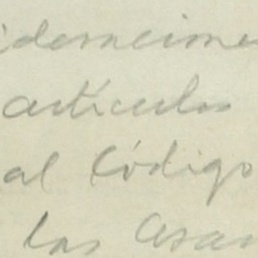 ideracione
artículos
al Código
las Asam